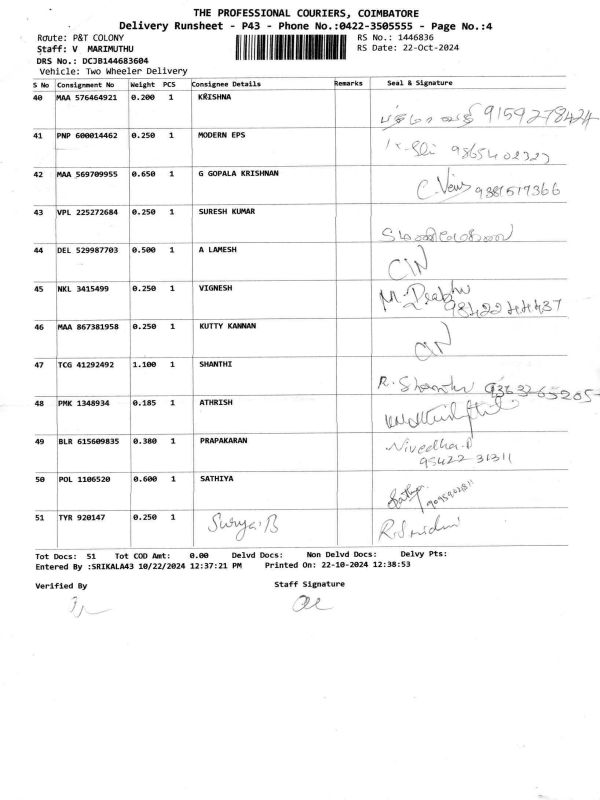 THE PROFESSIONAL COURIERS, COIMBATORE
Delivery Runsheet - P43 - Phone No.:0422-3505555 - Page No.:4
Route: P&T COLONY RS No.: 1446836
Staff: V MARIMUTHU RS Date: 22-Oct-2024
DRS No.: DCJB144683604
Vehicle: Two Wheeler Delivery
S No Consignment No Weight PCS Consignee Details Remarks Seal & Signature
40 MAA 576464921 0.200 1 KRISHNA 9159278424
41 PNP 600014462 0.250 1 MODERN EPS
42 MAA 569709955 0.650 1 G GOPALA KRISHNAN
43 VPL 225272684 0.250 1 SURESH KUMAR
44 DEL 529987703 0.500 1 A LAMESH
45 NKL 3415499 0.250 1 VIGNESH M. Prabhu
9842244437
46 MAA 867381958 0.250 1 KUTTY KANNAN
47 TCG 41292492 1.100 1 SHANTHI R. Shanthi
48 PMK 1348934 0.185 1 ATHRISH
49 BLR 615609835 0.380 1 PRAPAKARAN Nivedha.P
95422 31311
50 POL 1106520 0.600 1 SATHIYA Sathya
51 TYR 920147 0.250 1 Surya.B
Tot Docs: 51 Tot COD Amt: 0.00 Delvd Docs: Non Delvd Docs: Delvy Pts:
Entered By :SRIKALA43 10/22/2024 12:37:21 PM Printed On: 22-10-2024 12:38:53
Verified By Staff Signature